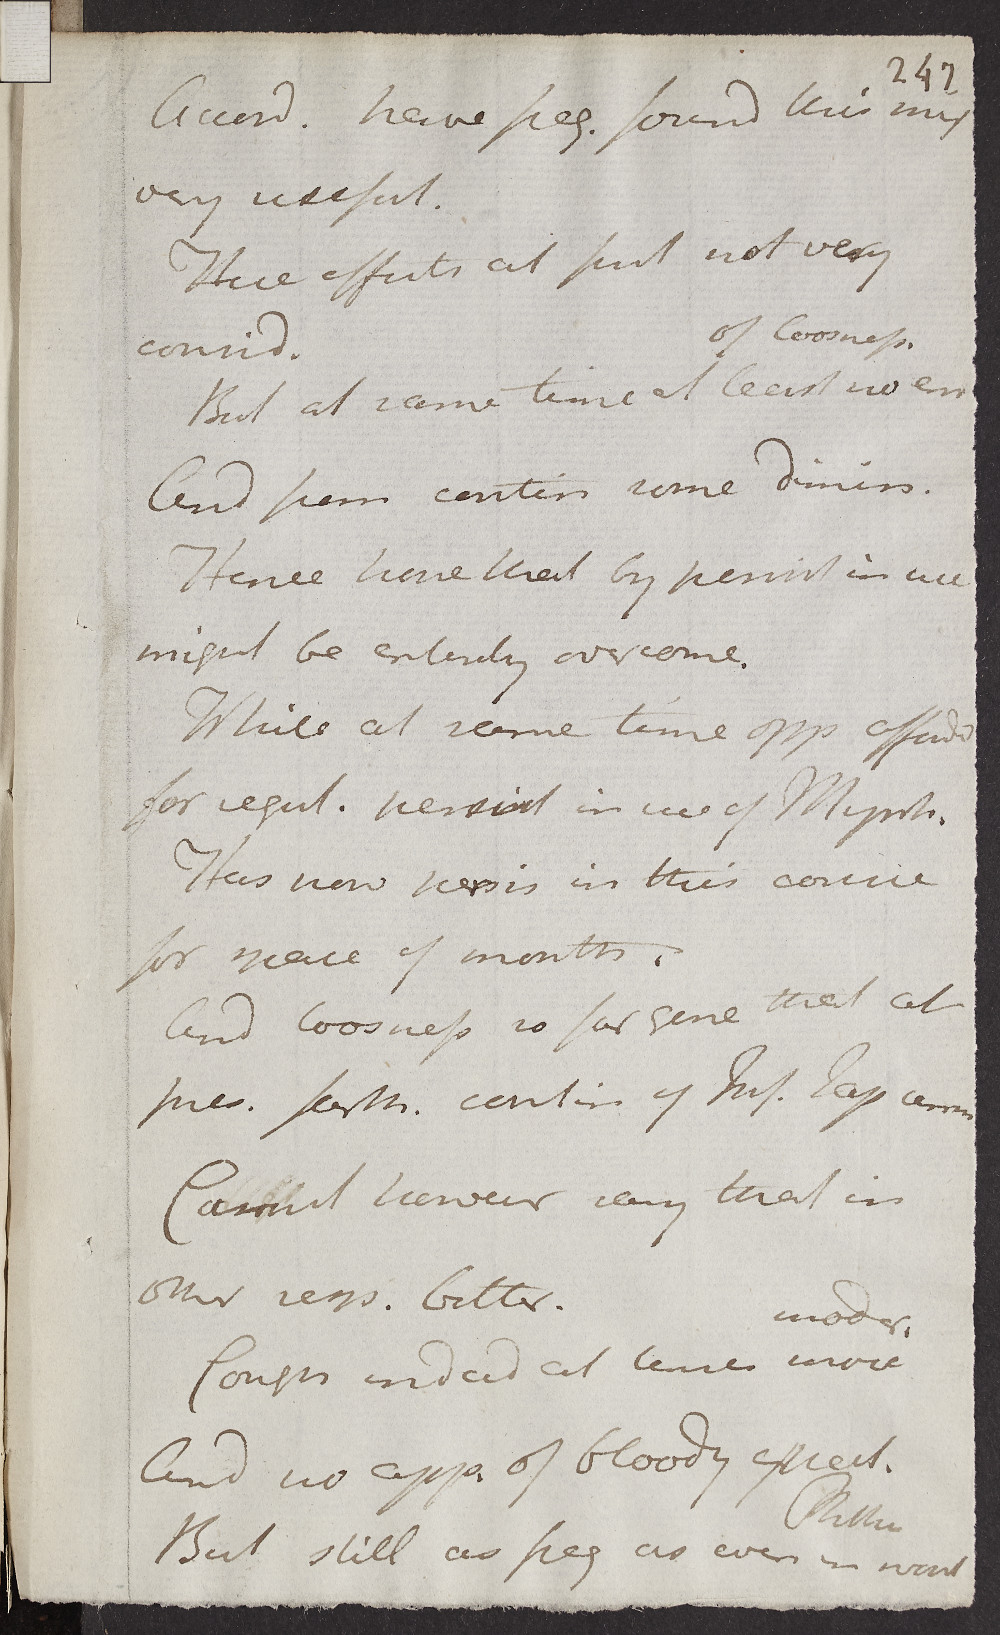 242
Accord. have freq. found this mix
very useful.
Thee effects at first not very
consid.
of Loosness.
But at same time at least no en
And from contin some dimin.
Hence hope that by persist in use
might be entirely overcome.
While at same time opp afford
for regul. persist in use of Myrrh.
Has now persis in this course
for space of months.
And Loosness so far gone that at
pres. farth. contin of Inf. Jap
Cannot however say that in
other resp. better.
moder.
Cough indeed at times more
And no app. of bloody expect.
But still as freq as ever